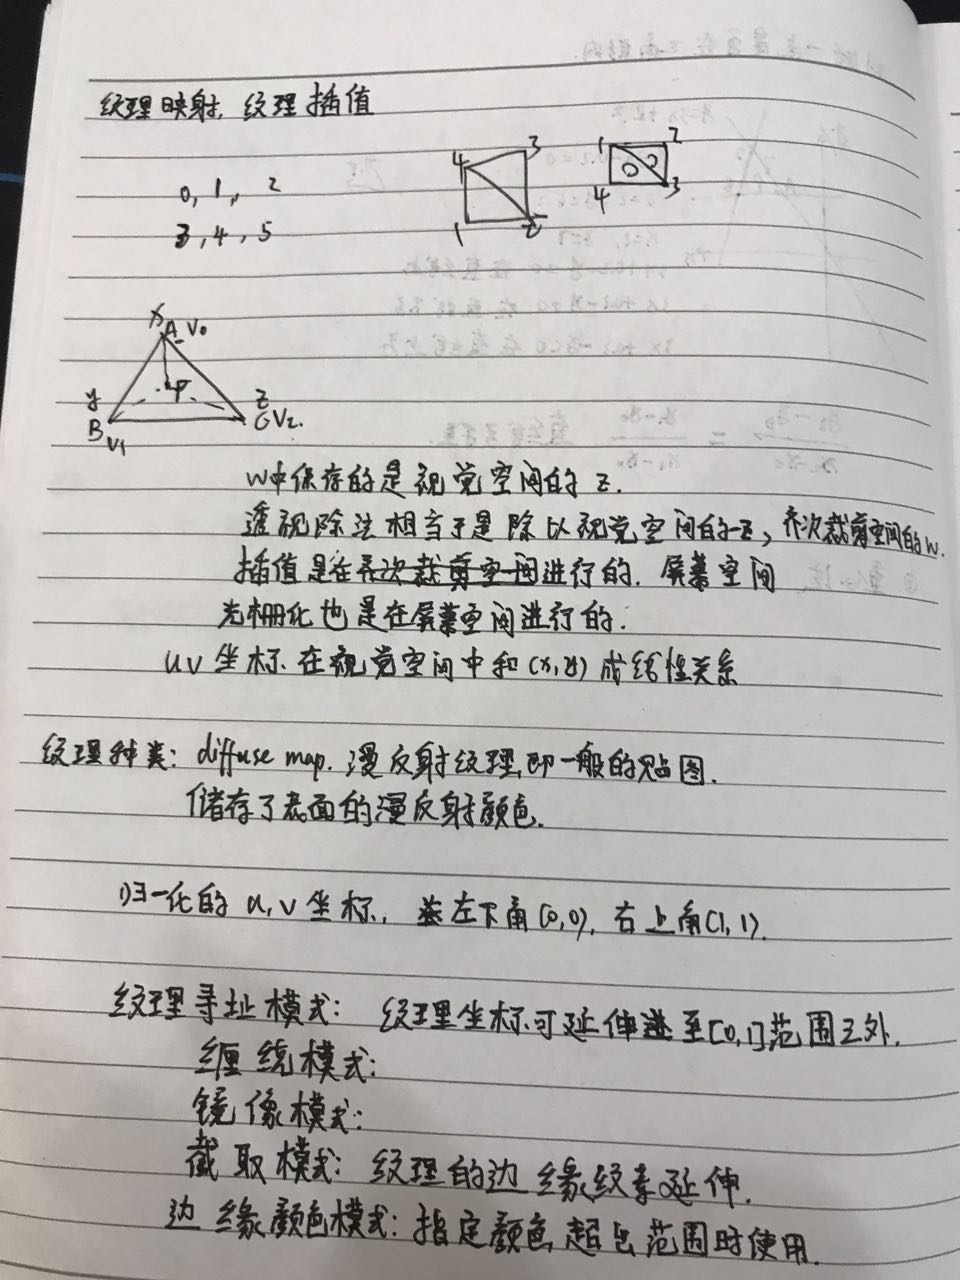 纹理映射, 纹理插值
0, 1, 2
3, 4, 5
4 3
1 2
1 2
4 3
X A V0
P
y B V1
z C V2.
W中保存的是视觉空间的 z.
透视除法相当于是除以视觉空间的-z, 齐次裁剪空间的w.
插值是在齐次裁剪空间进行的. 屏幕空间
光栅化也是在屏幕空间进行的.
uv 坐标在视觉空间中和(x,y)成线性关系
纹理种类: diffuse map. 漫反射纹理,即一般的贴图.
储存了表面的漫反射颜色.
归一化的 u,v 坐标, 左下角(0,0), 右上角(1,1).
纹理寻址模式: 纹理坐标可延伸至[0,1]范围之外.
缠绕模式:
镜像模式:
截取模式: 纹理的边缘纹素延伸.
边缘颜色模式: 指定颜色,超出范围时使用.